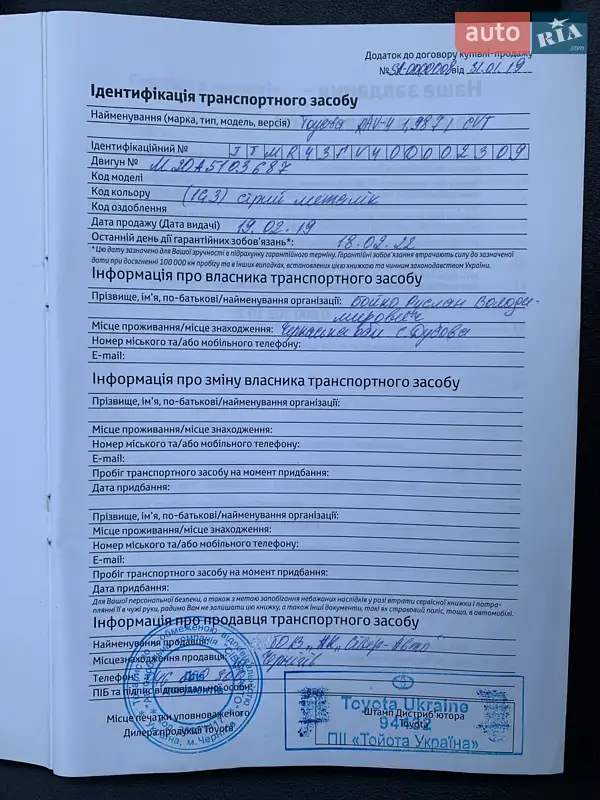 auto RIA.com
Додаток до договору купівлі-продажу
№ від 31.01.19
Ідентифікація транспортного засобу
Найменування (марка, тип, модель, версія) Toyota RAV-4 1,987 l CVT
Ідентифікаційний № JTMR43FV400002309
Двигун № M20A5103687
Код моделі
Код кольору (1G3) сірий металік
Код оздоблення
Дата продажу (Дата видачі) 19.02.19
Останній день дії гарантійних зобов'язань*: 18.02.22
* Цю дату зазначено для Вашої зручності в підрахунку гарантійного терміну. Гарантійні зобов'язання втрачають силу до зазначеної
дати при досягненні 100 000 км пробігу та в інших випадках, встановлених цією книжкою та чинним законодавством України.
Інформація про власника транспортного засобу
Прізвище, ім'я, по-батькові/найменування організації: Бойко Руслан Володи-
мирович
Місце проживання/місце знаходження: Черкаська обл с.
Номер міського та/або мобільного телефону:
E-mail:
Інформація про зміну власника транспортного засобу
Прізвище, ім'я, по-батькові/найменування організації:
Місце проживання/місце знаходження:
Номер міського та/або мобільного телефону:
E-mail:
Пробіг транспортного засобу на момент придбання:
Дата придбання:
Прізвище, ім'я, по-батькові/найменування організації:
Місце проживання/місце знаходження:
Номер міського та/або мобільного телефону:
E-mail:
Пробіг транспортного засобу на момент придбання:
Дата придбання:
Для Вашої персональної безпеки, а також з метою запобігання небажаних наслідків у разі втрати сервісної книжки і потра-
плянні її в чужі руки, радимо Вам не залишати цю книжку, а також інші документи, такі як страховий поліс, тощо, в автомобілі.
Інформація про продавця транспортного засобу
Найменування продавця: ТОВ "АК
Місцезнаходження продавця: Чернігів
Телефон:
ПІБ та підпис відповідальної особи:
Місце печатки уповноваженого
Дилера продукції Toyota
Штамп Дистриб'ютора
Toyota
Toyota Ukraine
ПІІ «Тойота Україна»